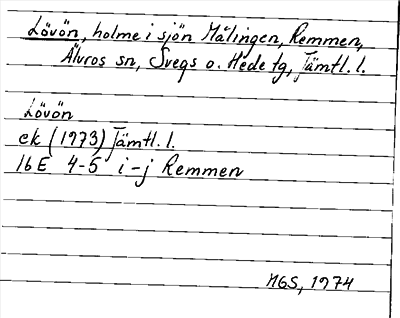 Lövön, holme i sjön Målingen, Remmen,
Älvros sn, Svegs o. Hede tg, Jämtl. l.
Lövön
ek (1973) Jämtl. l.
16E 4-5 i-j Remmen
MGS, 1974